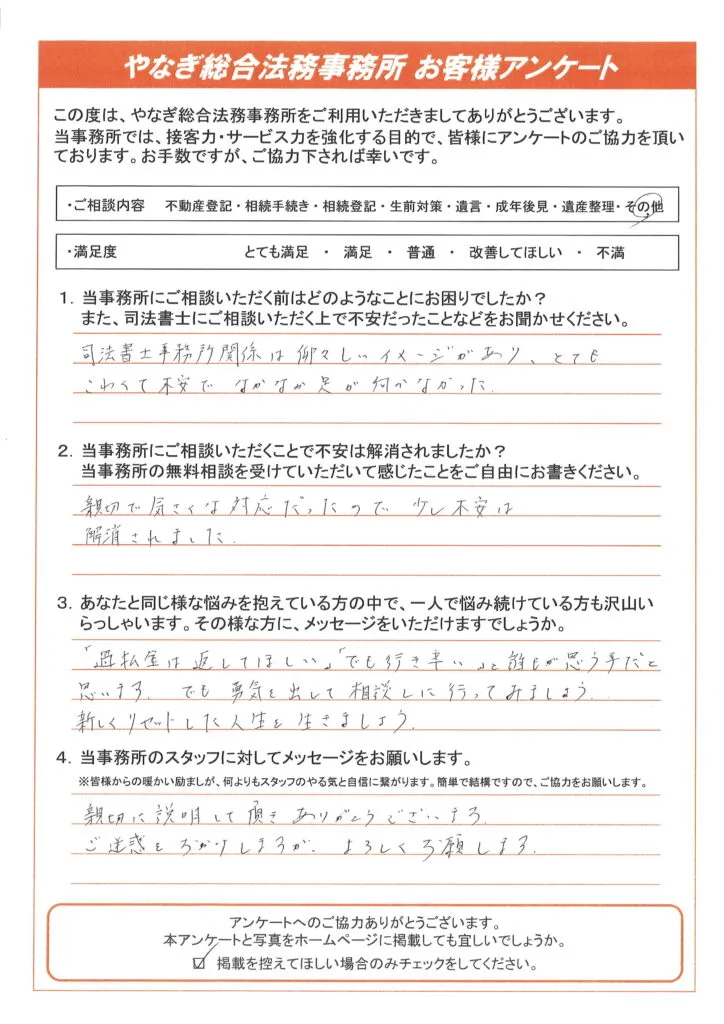 やなぎ総合法務事務所 お客様アンケート
この度は、やなぎ総合法務事務所をご利用いただきましてありがとうございます。
当事務所では、接客力・サービス力を強化する目的で、皆様にアンケートのご協力を頂い
ております。お手数ですが、ご協力下されば幸いです。
・ご相談内容 不動産登記・相続手続き・相続登記・生前対策・遺言・成年後見・遺産整理・その他
・満足度 とても満足 ・ 満足 ・ 普通 ・ 改善してほしい ・ 不満
1. 当事務所にご相談いただく前はどのようなことにお困りでしたか?
また、司法書士にご相談いただく上で不安だったことなどをお聞かせください。
司法書士事務所関係は仰々しいイメージがあり、とても
こわくて不安でなかなか足が向かなかった.
2. 当事務所にご相談いただくことで不安は解消されましたか?
当事務所の無料相談を受けていただいて感じたことをご自由にお書きください。
親切で気さくな対応だったので少し不安は
解消されました.
3. あなたと同じ様な悩みを抱えている方の中で、一人で悩み続けている方も沢山い
らっしゃいます。その様な方に、メッセージをいただけますでしょうか。
「過払金は返してほしい」「でも行き辛い」と誰もが思う事だと
思います. でも勇気を出して相談しに行ってみましょう.
新しくリセットした人生を生きましょう.
4. 当事務所のスタッフに対してメッセージをお願いします。
※皆様からの暖かい励ましが、何よりもスタッフのやる気と自信に繋がります。簡単で結構ですので、ご協力をお願いします。
親切に説明して頂きありがとうございます.
ご迷惑をおかけしますが、よろしくお願します.
アンケートへのご協力ありがとうございます。
本アンケートと写真をホームページに掲載しても宜しいでしょうか。
☑ 掲載を控えてほしい場合のみチェックをしてください。